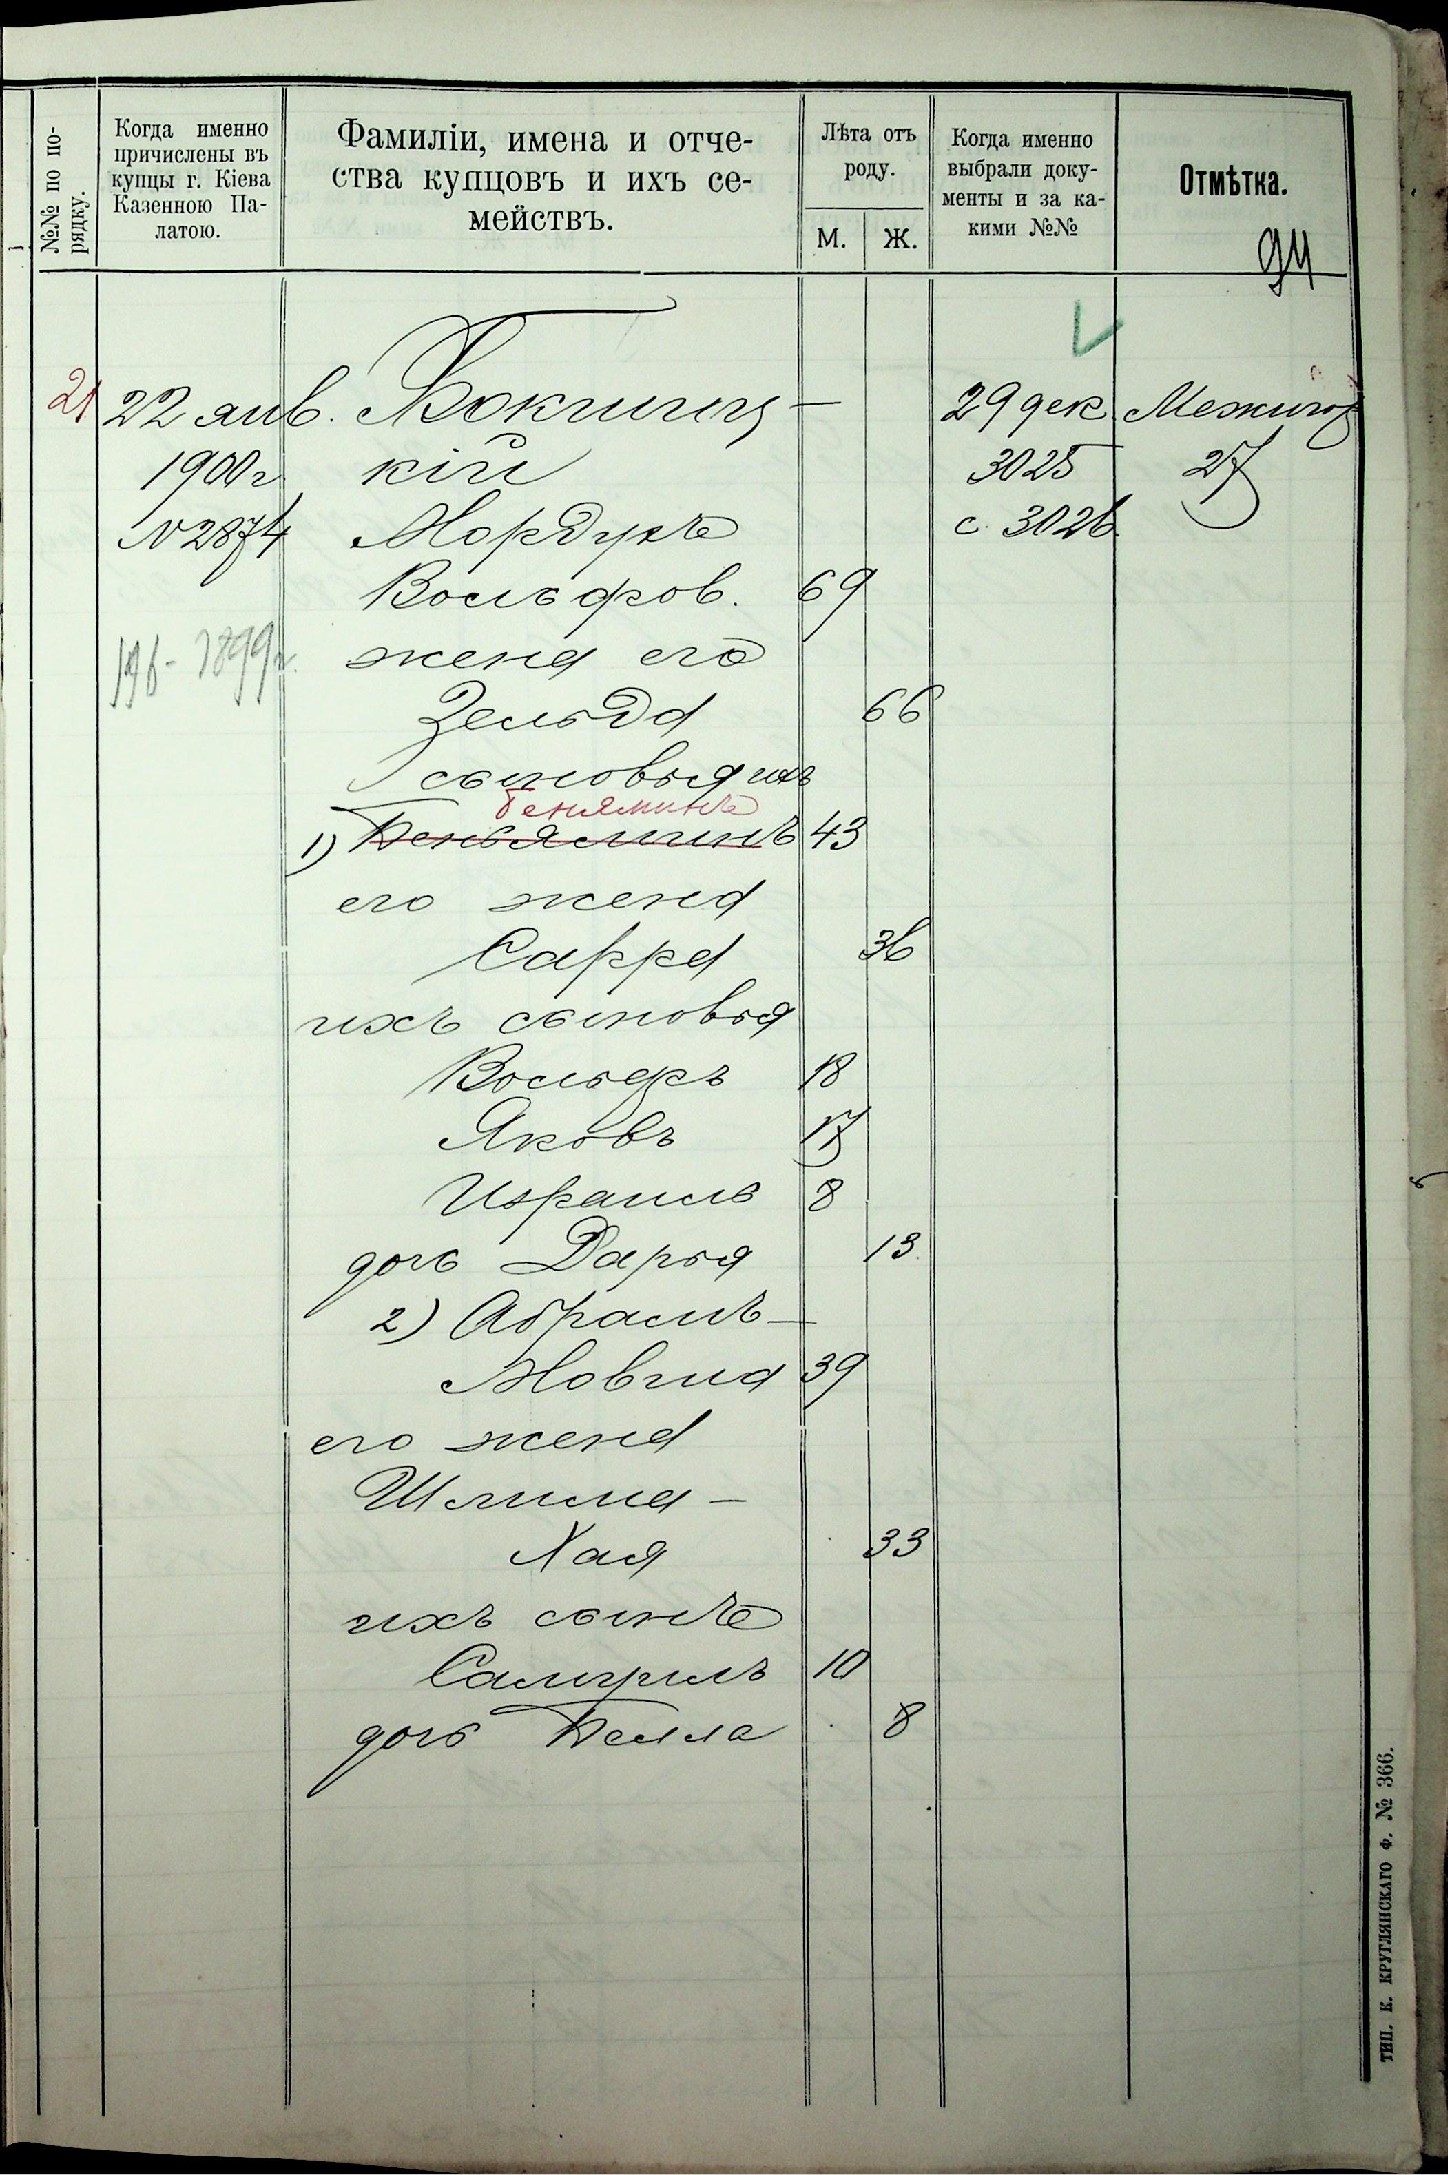 №№ по по-
рядку.
Когда именно
причислены въ
купцы г. Кіева
Казенною Па-
латою.
Фамиліи, имена и отче-
ства купцовъ и ихъ се-
мействъ.
Лѣта отъ
роду.
М. Ж.
Когда именно
выбрали доку-
менты и за ка-
кими №№
Отмѣтка.
94
21 22 янв. 29 дек. Межигор
1900 г кій 3025 27
№ 2874 Мордухъ с 3026
Вольфов. 69
1899 г.
жена его
Зельда 66
сыновья ихъ
Беняминъ
1) Беньяминъ 43
его жена
Сарра 36
ихъ сыновья
Вольфъ 18
Яковъ 17
Израиль 8
дочь Дарья 13
2) Абрамъ-
Мовша 39
его жена
Шлима-
Хая 33
ихъ сынъ
Самуилъ 10
дочь Белла 8
ТИП. К. КРУГЛЯНСКАГО Ф. № 366.